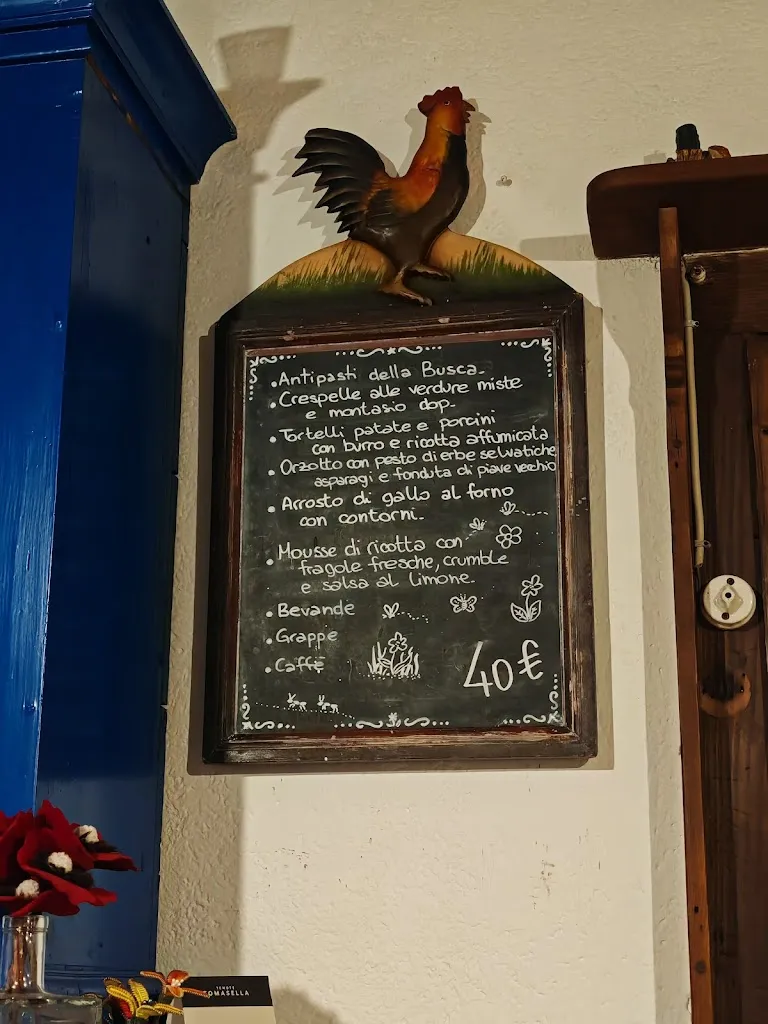 • Antipasti della Busca.
• Crespelle alle verdure miste
e montasio dop.
• Tortelli patate e porcini
con burro e ricotta affumicata
• Orzotto con pesto di erbe selvatiche
asparagi e fonduta di piave vecchio
• Arrosto di gallo al forno
con contorni.
• Mousse di ricotta con
fragole fresche, crumble
e salsa al limone.
• Bevande
• Grappe
• Caffè
40€
TENUTE
TOMASELLA